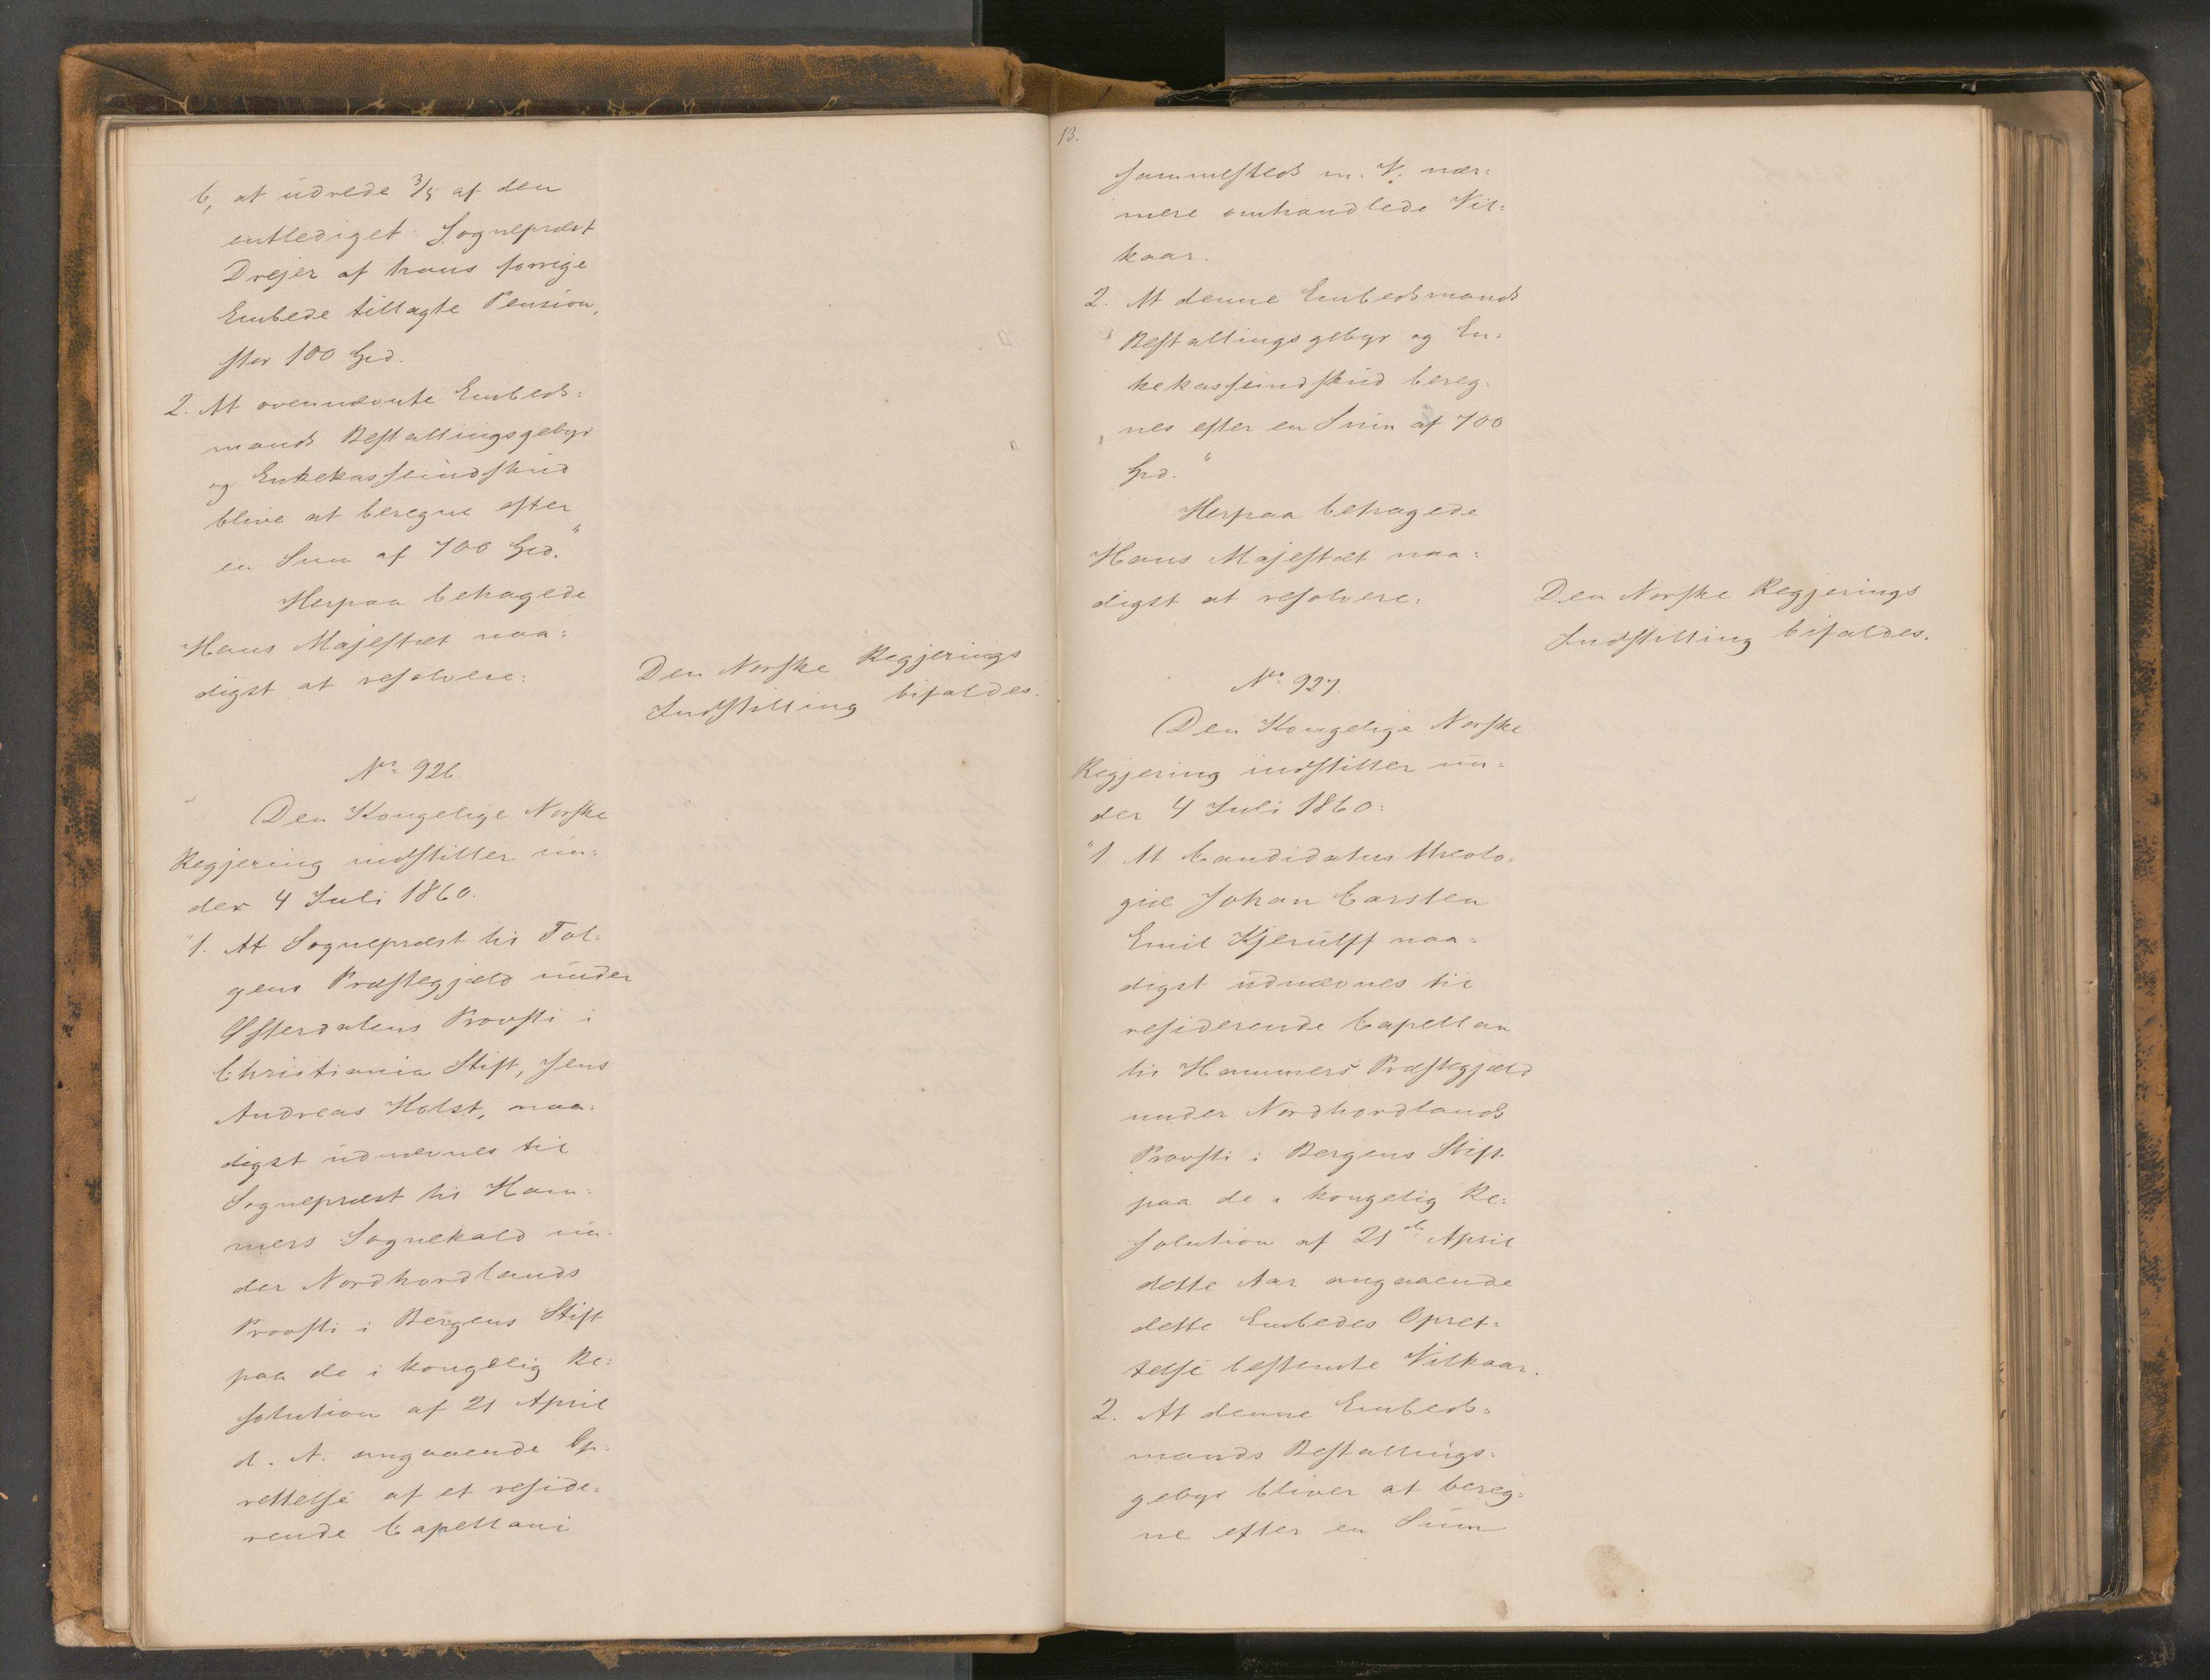 b, at udrede 3/5 af den
entlediget Sognepræst
Drejer af hans forrige
Embede tillagte Pension,
stor 100 Spd.
2. At ovennævnte Embeds-
mands Bestallingsgebyr
og Enkekasseindskud
blive at beregne efter
en Sum af 700 Spd."
Herpaa behagede
Hans Majestæt naa-
digst at resolvere:
Den Norske Regjerings
Indstilling bifaldes.
No 926.
Den Kongelige Norske
Regjering indstiller un-
der 4 Juli 1860.
"1. At Sognepræst til Tol-
gens Præstegjæld under
Østerdalens Provsti i
Christiania Stift, Jens
Andreas Holst, naa-
digst udnævnes til
Sognepræst til Ham-
mers Sognekald un-
der Nordhordlands
Provsti i Bergens Stift
paa de i kongelig Re-
solution af 21 April
d. A. angaaende Op-
rettelse af et reside-
rende Capellani
13.
sammesteds m. V. nær-
mere omhandlede Vil-
kaar.
2. At denne Embedsmands
Bestallingsgebyr og En-
kekasseindskud bereg-
nes efter en Sum af 700
Spd."
Herpaa behagede
Hans Majestæt naa-
digst at resolvere:
Den Norske Regjerings
Indstilling bifaldes.
No 927.
Den Kongelige Norske
Regjering indstiller un-
der 4 Juli 1860:
"1 At Candidatus theolo-
giæ Johan Carsten
Emil Kjerulff naa-
digst udnævnes til
residerende Capellan
til Hammers Præstegjæld
under Nordhordlands
Provsti i Bergens Stift
paa de i kongelig Re-
solution af 21de April
dette Aar angaaende
dette Embedes Opret-
telse bestemte Vilkaar.
2. At denne Embeds-
mands Bestallings-
gebyr bliver at bereg-
ne efter en Sum